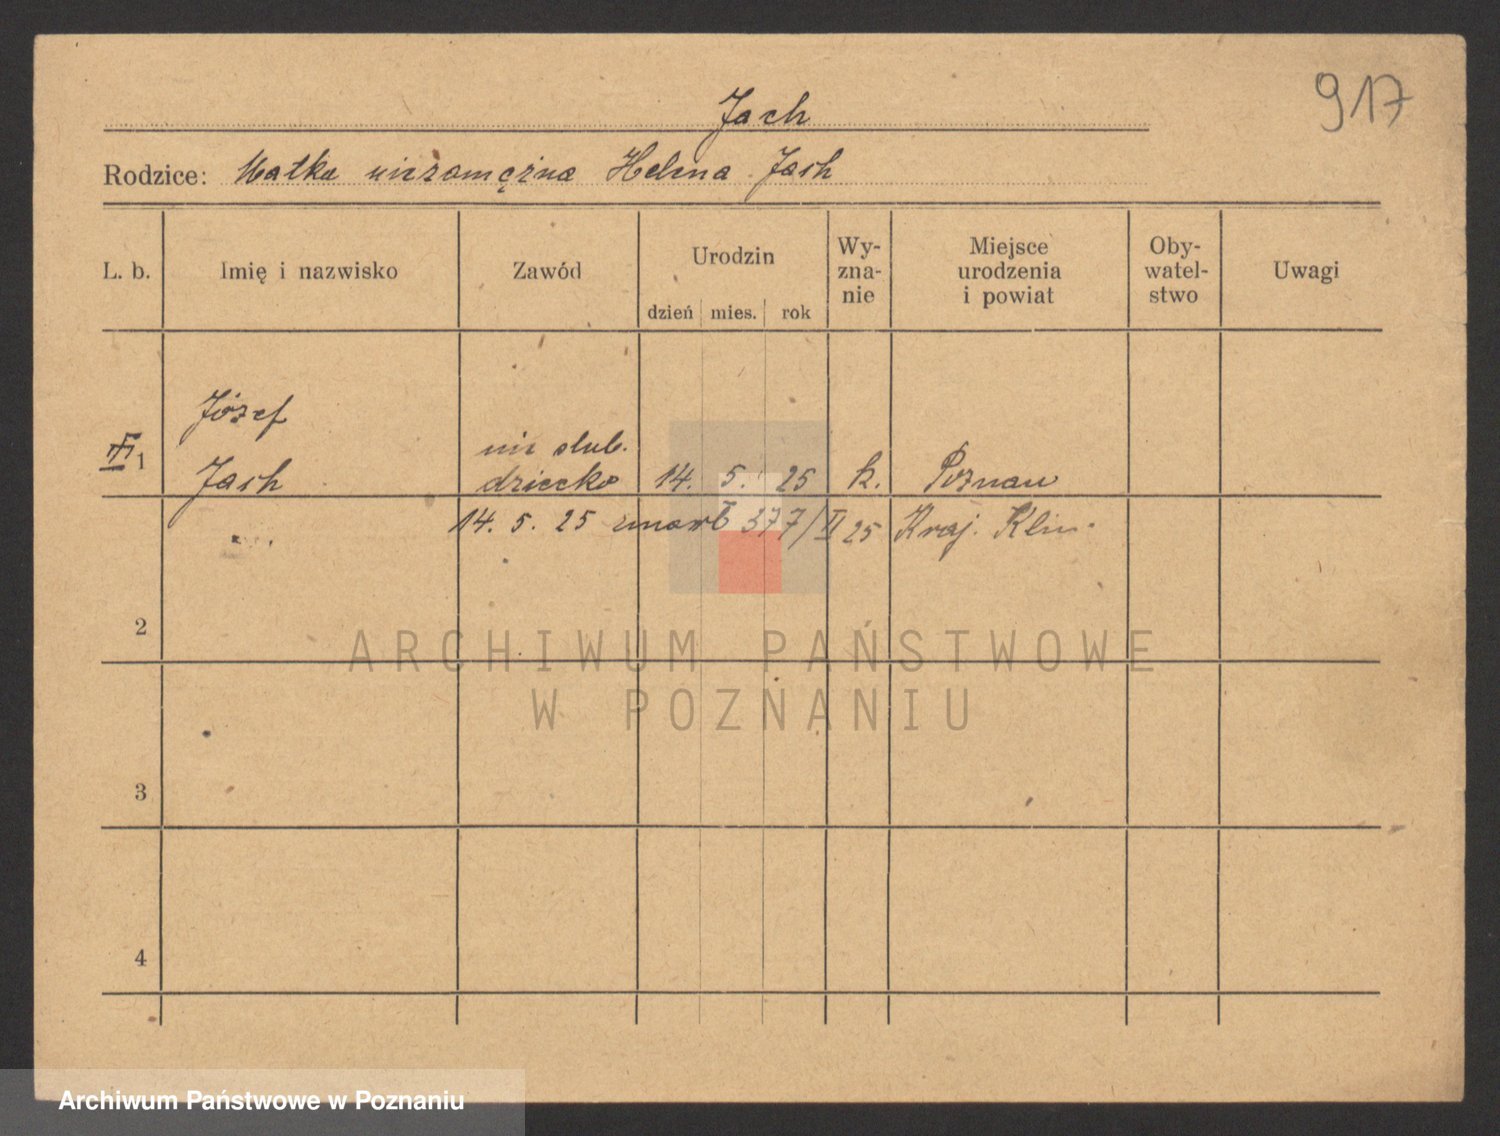 917
Jach
Rodzice: Matka niezamężna Helena Jach
L. b.
Imię i nazwisko
Zawód
Urodzin
dzień mies. rok
Wy-
zna-
nie
Miejsce
urodzenia
i powiat
Oby-
watel-
stwo
Uwagi
1
Józef
Jach
nie ślub.
dziecko
14. 5. 25
k.
Poznań
14. 5. 25 zmarł 377/II 25 Kraj. Klin.
2
3
4
ARCHIWUM PAŃSTWOWE
W POZNANIU
Archiwum Państwowe w Poznaniu